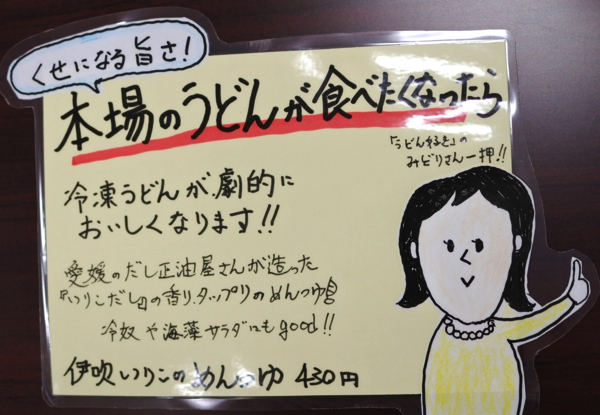 くせになる旨さ!
本場のうどんが食べたくなったら
「うどん好き」の
みどりさん一押!!
冷凍うどんが劇的に
おいしくなります!!
愛媛のだし正油屋さんが造った
『いりこだし』の香りタップリのめんつゆ
冷奴や海藻サラダにもgood!!
伊吹いりこのめんつゆ 430円